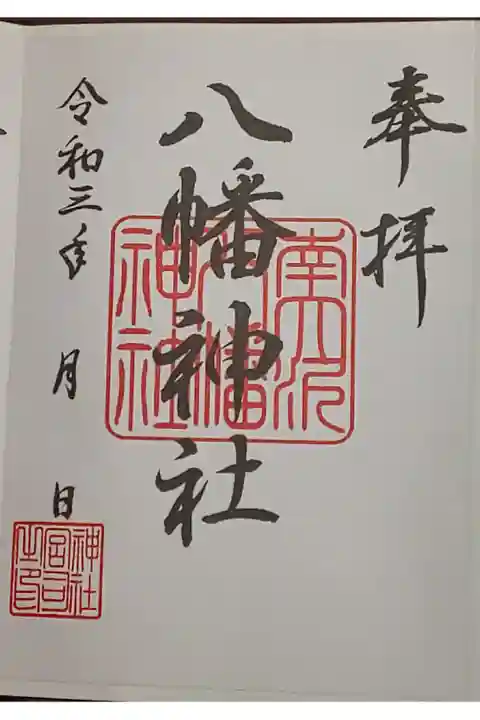 奉拝
八幡神社
令和三年 月 日
八幡
神社
神社
宮司
之印